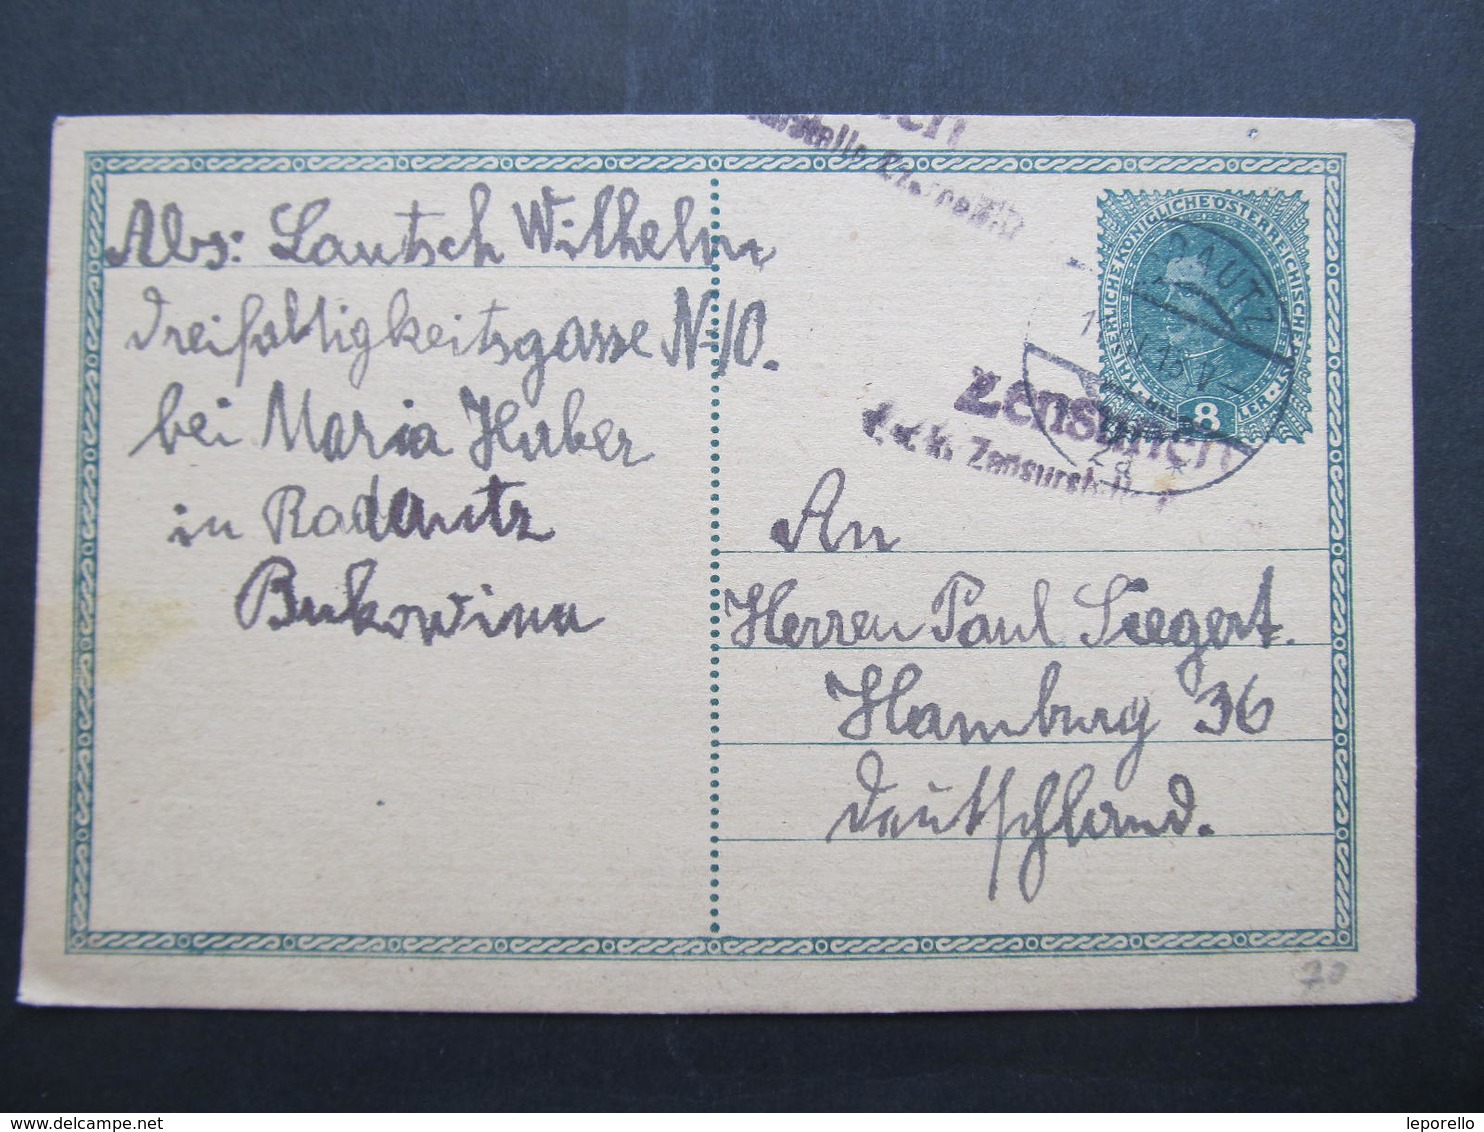 Abs: Lautsch Wilhelm
Dreifaltigkeitsgasse N-10.
bei Maria Huber
in Radautz
Bukowina
KAISERLICHE KÖNIGLICHE ÖSTERREICHISCHE POST
8
RADAUTZ
Zensuriert
k.u.k. Zensurstelle
An
Herren Paul Siegert.
Hamburg 36
Deutschland.
70
delcampe.net
leporello